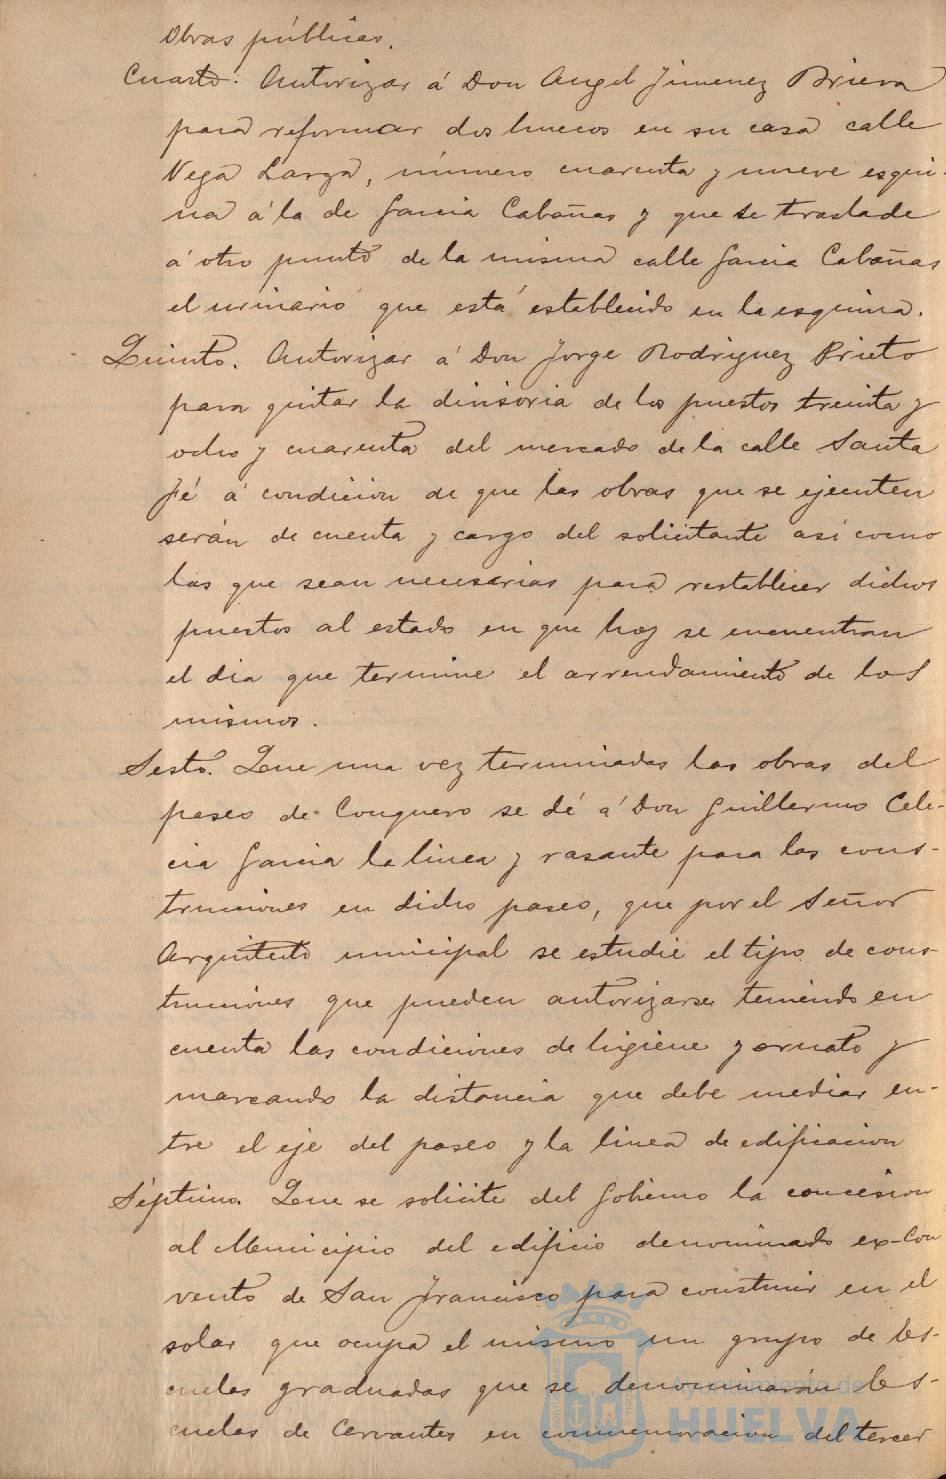 Obras públicas.
Cuarto. Autorizar á Don Angel Jimenez Briera
para reformar dos huecos en su casa calle
Vega Larga, número cuarenta y nueve esqui-
na á la de Garcia Cabañas y que se traslade
á otro punto de la misma calle Garcia Cabañas
el urinario que está establecido en la esquina.
Quinto. Autorizar á Don Jorge Rodriguez Prieto
para quitar la divisoria de los puestos treinta y
ocho y cuarenta del mercado de la calle Santa
Fé á condicion de que las obras que se ejecuten
serán de cuenta y cargo del solicitante así como
las que sean necesarias para restablecer dichos
puestos al estado en que hoy se encuentran
el dia que termine el arrendamiento de los
mismos.
Sesto. Que una vez terminadas las obras del
paseo de Conquero se dé á Don Guillermo Cele-
cia Garcia la linea y rasante para las cons-
trucciones en dicho paseo, que por el Señor
Arquitecto municipal se estudie el tipo de cons-
trucciones que pueden autorizarse teniendo en
cuenta las condiciones de higiene y ornato y
marcando la distancia que debe mediar en-
tre el eje del paseo y la linea de edificacion
Séptimo. Que se solicite del Gobierno la concesion
al Municipio del edificio denominado ex-Con
vento de San Francisco para construir en el
solar que ocupa el mismo un grupo de Es-
cuelas graduadas que se denominarán Es-
cuelas de Cervantes en conmemoracion del tercer
Ayuntamiento de
HUELVA